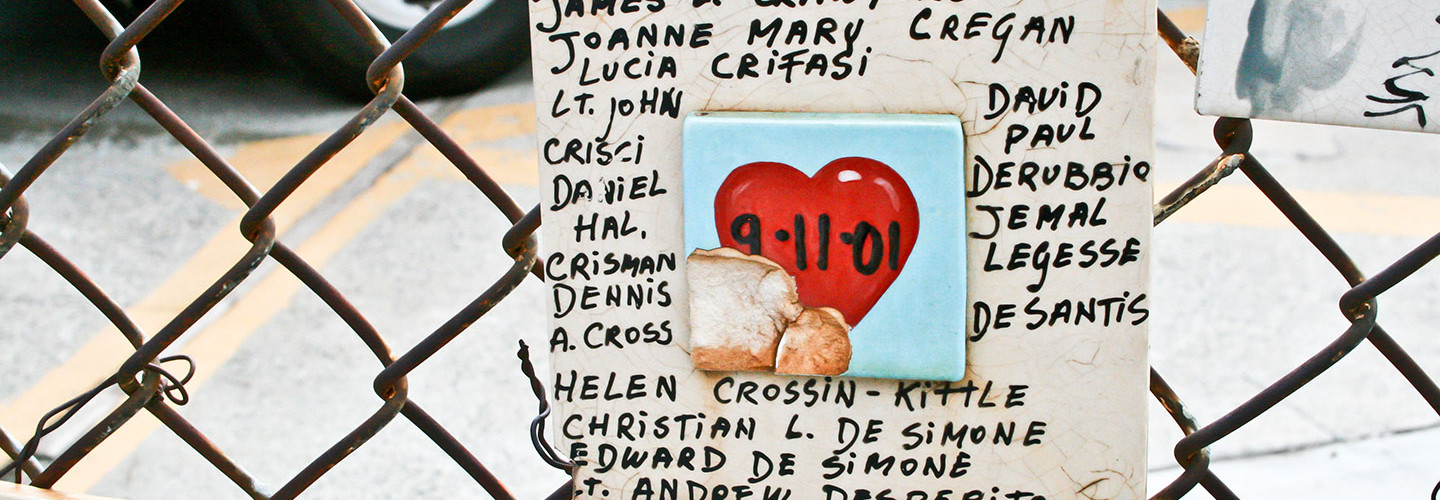 JOANNE MARY CREGAN
LUCIA CRIFASI
LT. JOHN
CRISCI
DANIEL
HAL.
CRISMAN
DENNIS
A. CROSS
9·11·01
DAVID
PAUL
DERUBBIO
JEMAL
LEGESSE
DESANTIS
HELEN CROSSIN-KITTLE
CHRISTIAN L. DE SIMONE
EDWARD DE SIMONE
LT. ANDREW DESPERITO